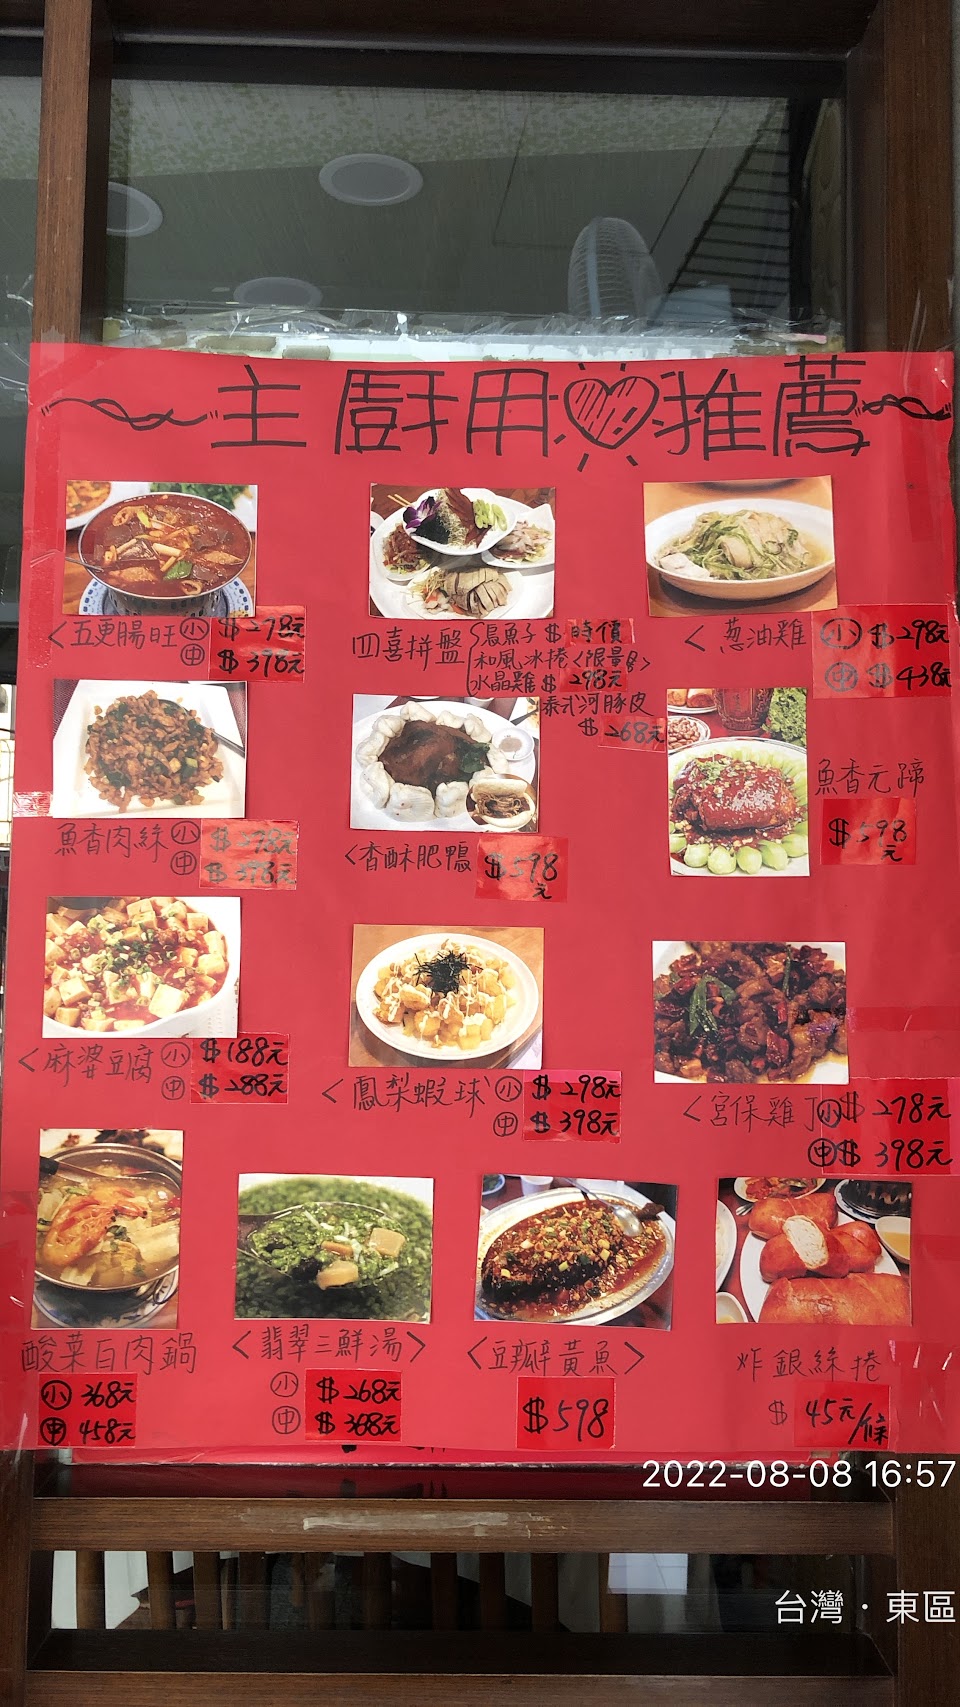 主廚用♥推薦
<五更腸旺 小 $278元
中 $398元
四喜拼盤 烏魚子 $時價
和風冰捲<限量>
水晶雞 $298元
泰式河豚皮
$268元
<蔥油雞 小 $298元
中 $438元
魚香肉絲 小 $278元
中 $398元
<香酥肥鴨 $598元
魚香元蹄
$598元
<麻婆豆腐 小 $188元
中 $288元
<鳳梨蝦球 小 $298元
中 $398元
<宮保雞丁 小 $278元
中 $398元
酸菜白肉鍋
小 368元
中 458元
<翡翠三鮮湯>
小 $268元
中 $368元
<豆瓣黃魚>
$598
炸銀絲捲
$45元/條
2022-08-08 16:57
台灣·東區